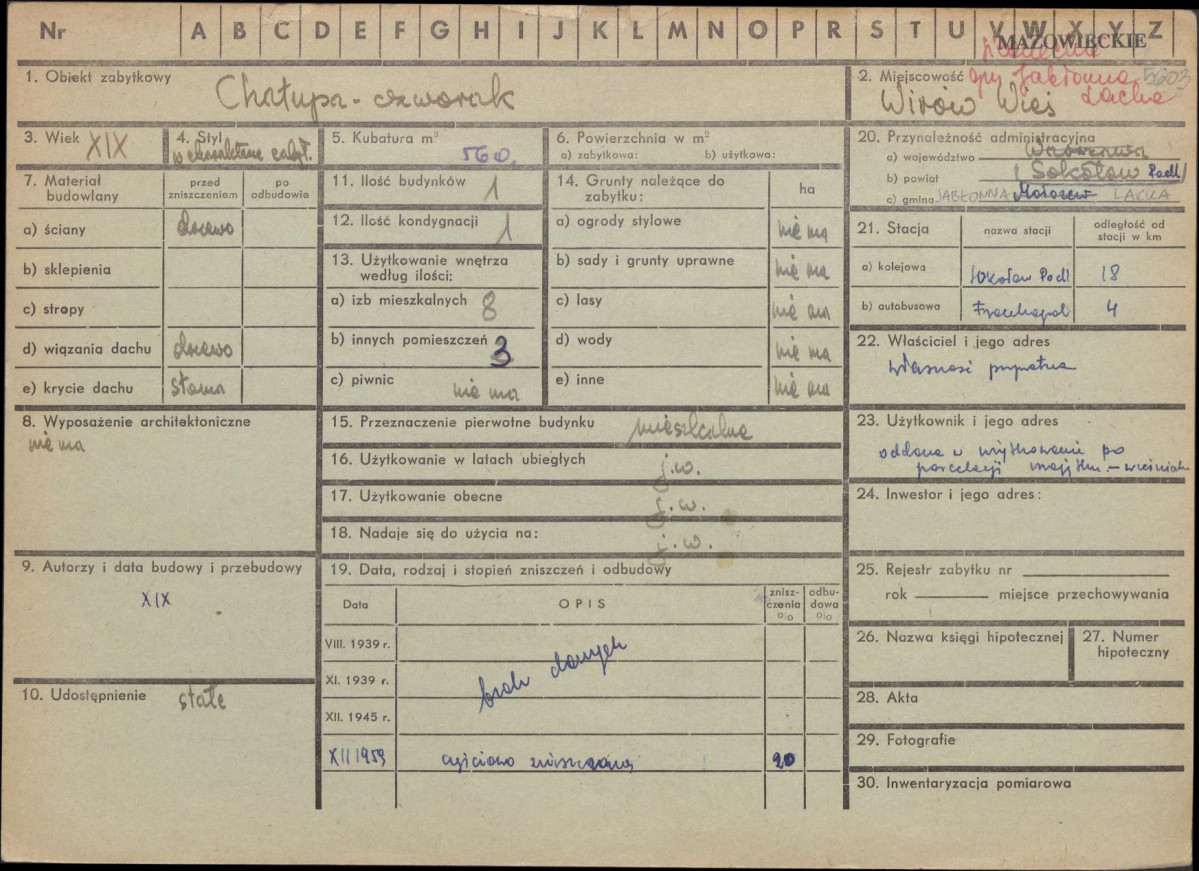 Nr A B C D E F G H I J K L M N O P R S T U V W X Y Z
MAZOWIECKIE
1. Obiekt zabytkowy
Chałupa - czworak
2. Miejscowość gm Jabłonna Lacka 5603
Wirów Wieś
3. Wiek XIX
4. Styl
w charakterze
5. Kubatura m³
560.
6. Powierzchnia w m²
a) zabytkowa: b) użytkowa:
20. Przynależność administracyjna
a) województwo Warszawa
b) powiat Sokołów Podl
c) gmina JABŁONNA LACKA
7. Materiał budowlany
przed zniszczeniem
po odbudowie
a) ściany drzewo
b) sklepienia
c) stropy
d) wiązania dachu drzewo
e) krycie dachu słoma
11. Ilość budynków 1
12. Ilość kondygnacji 1
13. Użytkowanie wnętrza według ilości:
a) izb mieszkalnych 8
b) innych pomieszczeń 3
c) piwnic nie ma
14. Grunty należące do zabytku:
ha
a) ogrody stylowe nie ma
b) sady i grunty uprawne nie ma
c) lasy nie ma
d) wody nie ma
e) inne nie ma
21. Stacja
nazwa stacji
odległość od stacji w km
a) kolejowa Sokołów Podl 18
b) autobusowa 4
22. Właściciel i jego adres
własność prywatna
8. Wyposażenie architektoniczne
nie ma
15. Przeznaczenie pierwotne budynku mieszkalne
16. Użytkowanie w latach ubiegłych j.w.
17. Użytkowanie obecne j.w.
18. Nadaje się do użycia na: j.w.
23. Użytkownik i jego adres
oddana w użytkowanie po
parcelacji majątku - wieśniak
24. Inwestor i jego adres:
9. Autorzy i data budowy i przebudowy
XIX
10. Udostępnienie stałe
19. Data, rodzaj i stopień zniszczeń i odbudowy
Data
OPIS
znisz-
czenia
o/o
odbu-
dowa
o/o
VIII. 1939 r.
XI. 1939 r.
XII. 1945 r.
brak danych
XII 1959 częściowo zniszczona 20
25. Rejestr zabytku nr
rok miejsce przechowywania
26. Nazwa księgi hipotecznej
27. Numer hipoteczny
28. Akta
29. Fotografie
30. Inwentaryzacja pomiarowa